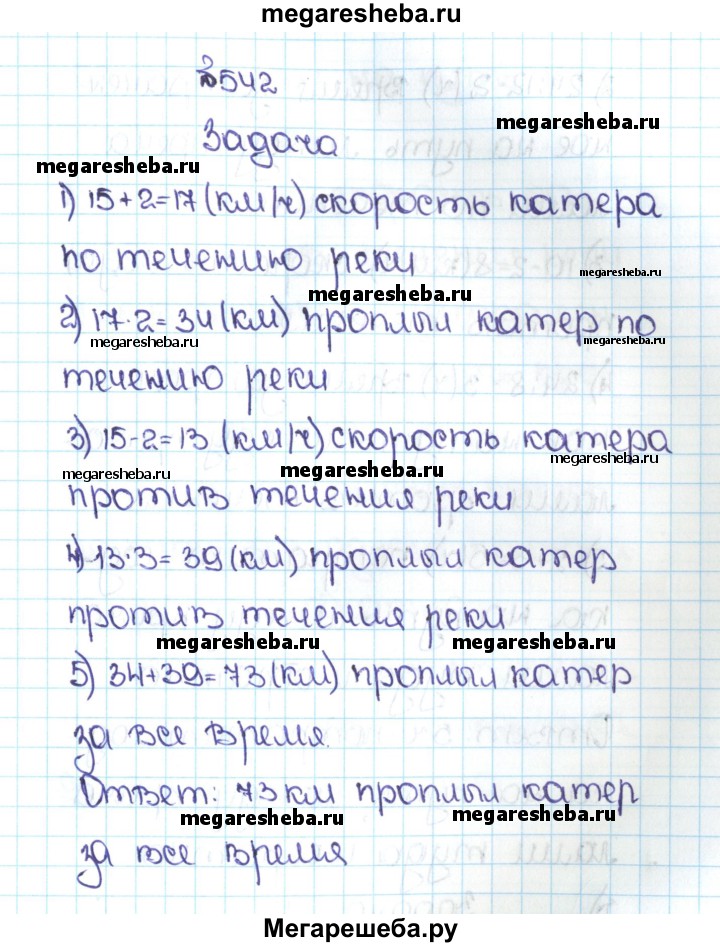 megaresheba.ru
№542
megaresheba.ru
Задача
megaresheba.ru
1) 15+2=17 (км/ч) скорость катера
по течению реки
megaresheba.ru
megaresheba.ru
2) 17·2=34 (км) проплыл катер по
megaresheba.ru
megaresheba.ru
течению реки
3) 15-2=13 (км/ч) скорость катера
megaresheba.ru
megaresheba.ru
megaresheba.ru
против течения реки
4) 13·3=39 (км) проплыл катер
против течения реки
megaresheba.ru
megaresheba.ru
5) 34+39=73 (км) проплыл катер
за все время.
Ответ: 73 км проплыл катер
megaresheba.ru
megaresheba.ru
за все время
Мегарешеба.ру